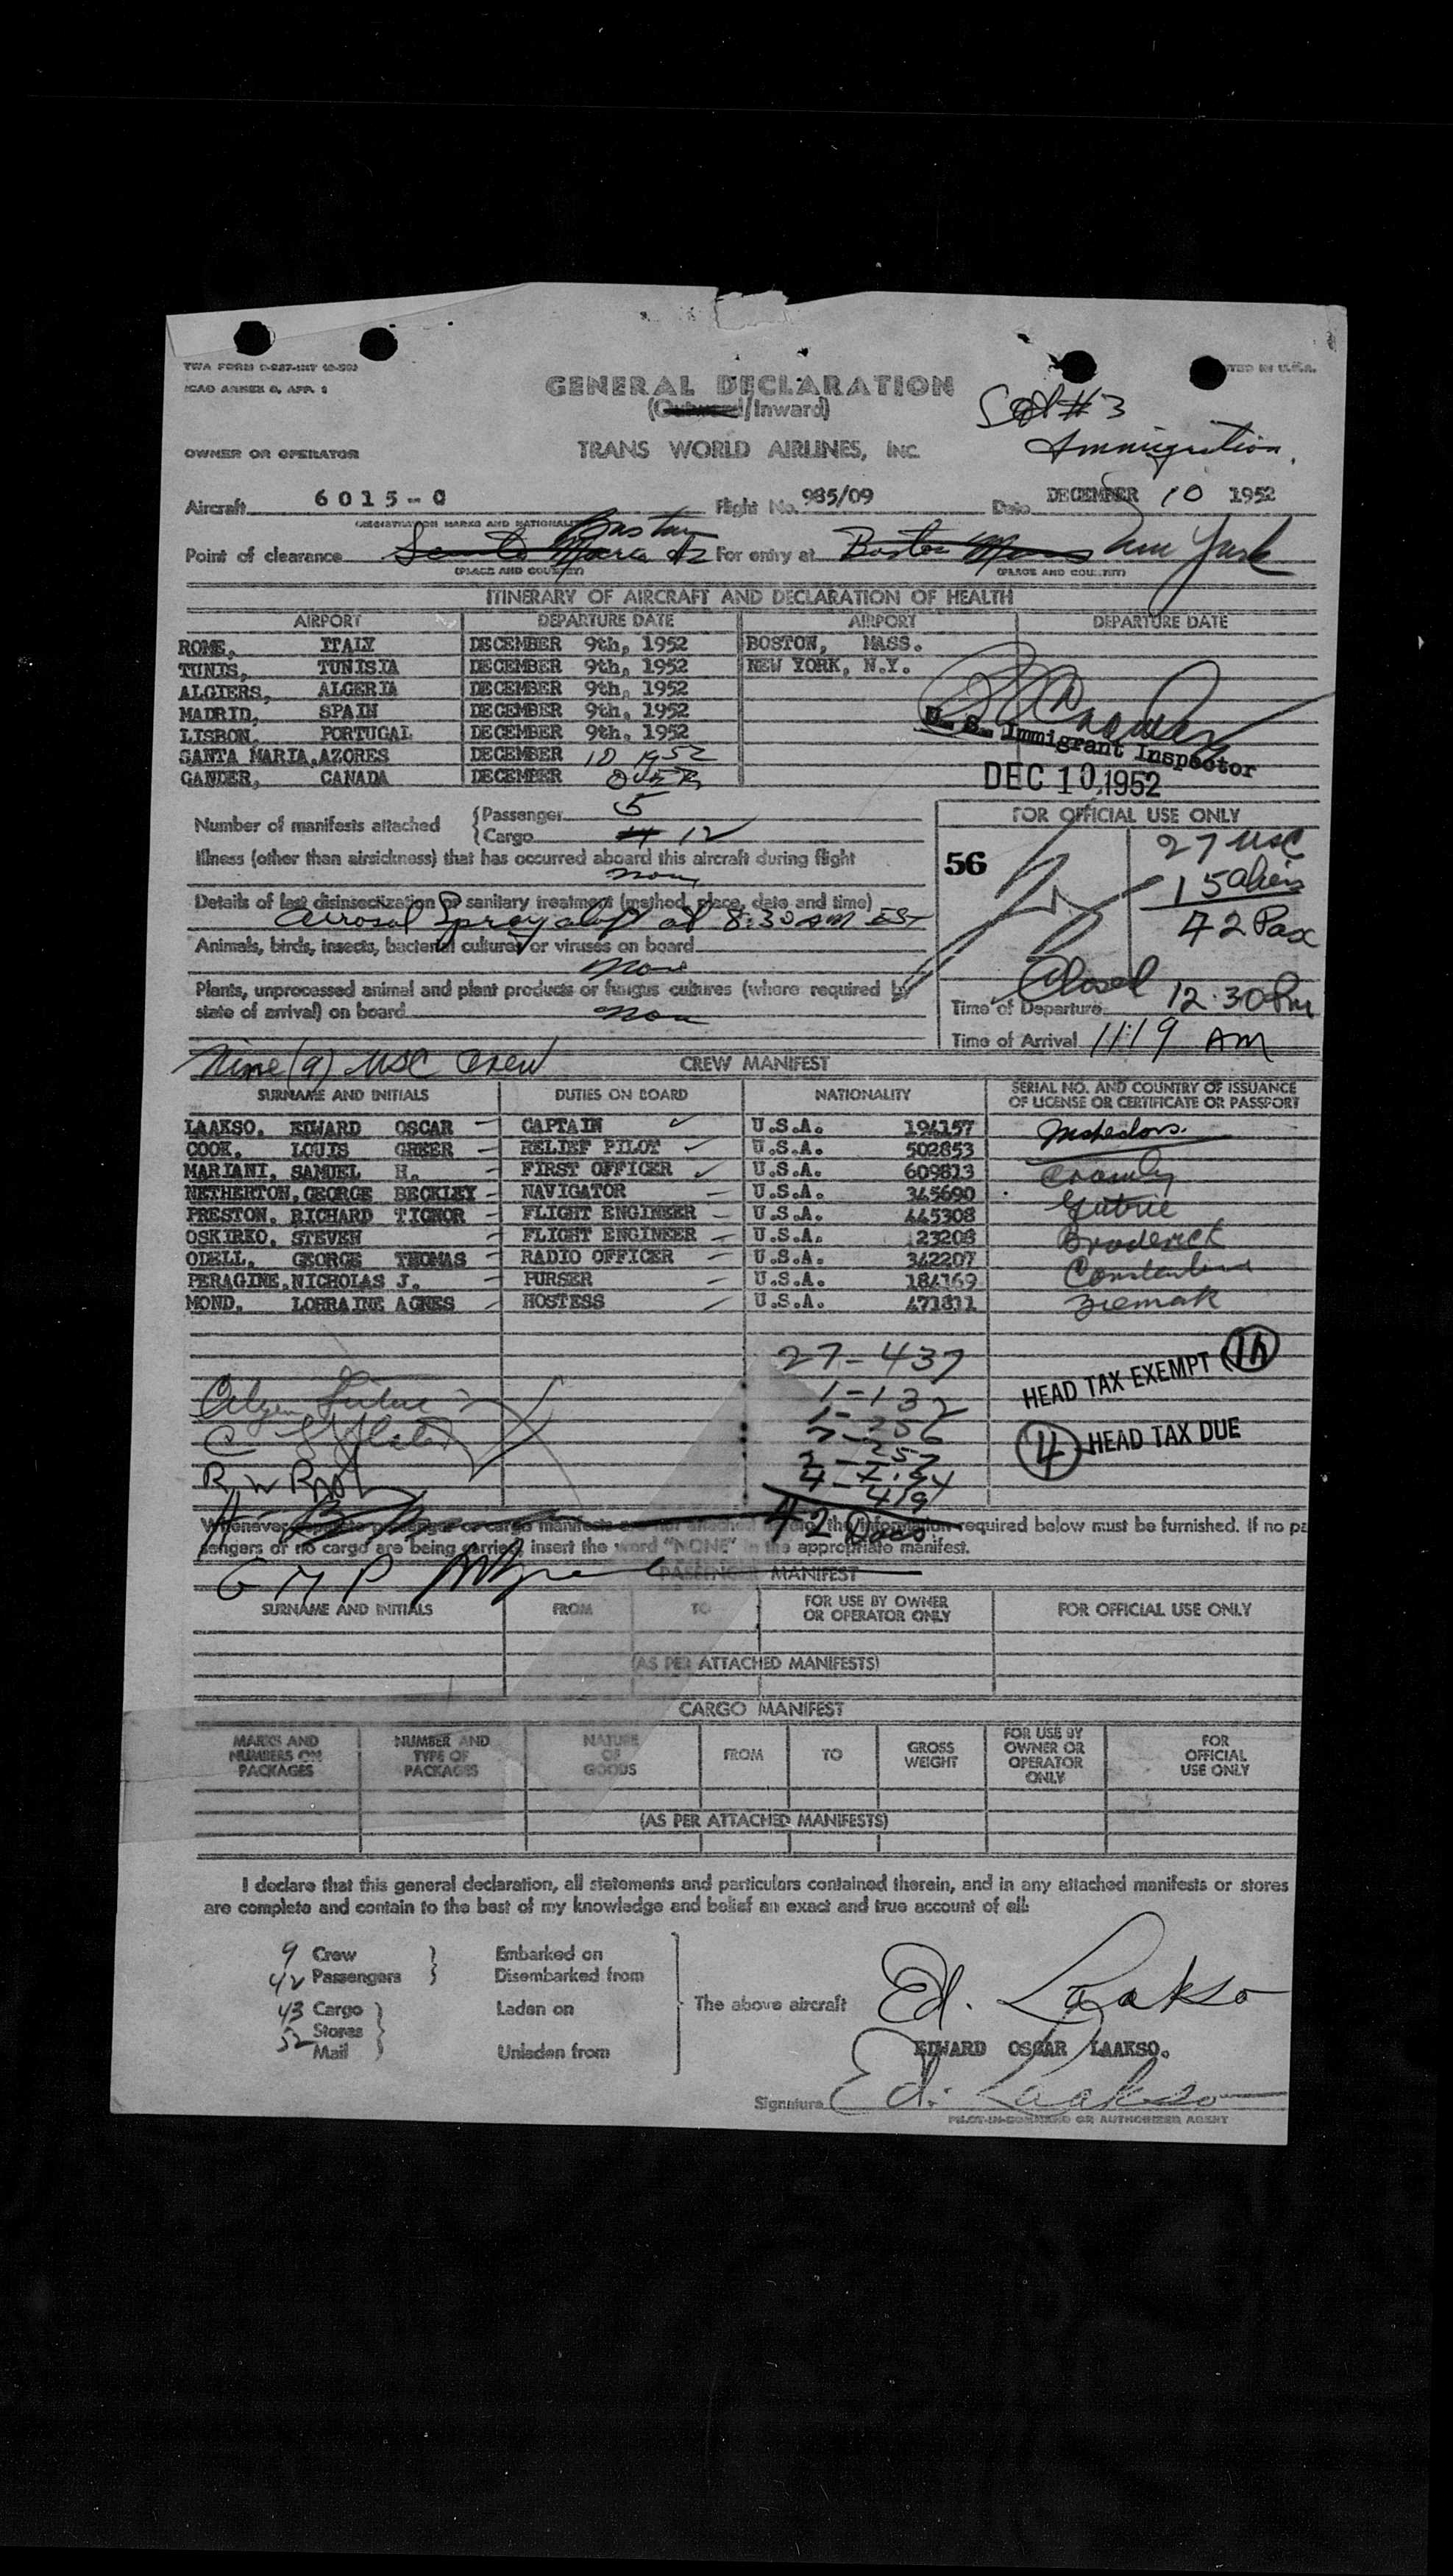 TWA FORM
ICAO ANNEX 9, APP. 1
GENERAL DECLARATION
(Outward/Inward)
Immigration
OWNER OR OPERATOR
TRANS WORLD AIRLINES, INC
Aircraft 6015-C Flight No. 985/09 Date DECEMBER 10 1952
(REGISTRATION MARKS AND NATIONALITY)
Boston
Point of clearance Santa Maria Az For entry at Boston Mass New York
(PLACE AND COUNTRY) (PLACE AND COUNTRY)
ITINERARY OF AIRCRAFT AND DECLARATION OF HEALTH
AIRPORT DEPARTURE DATE AIRPORT DEPARTURE DATE
ROME, ITALY DECEMBER 9th, 1952 BOSTON, MASS.
TUNIS, TUNISIA DECEMBER 9th, 1952 NEW YORK, N.Y.
ALGIERS, ALGERIA DECEMBER 9th, 1952
MADRID, SPAIN DECEMBER 9th, 1952
LISBON. PORTUGAL DECEMBER 9th, 1952
SANTA MARIA,AZORES DECEMBER 10 1952
GANDER, CANADA DECEMBER OVER
U. S. Immigrant Inspector
DEC 10 1952
Number of manifests attached
Passenger 5
Cargo 12
FOR OFFICIAL USE ONLY
56
27 USC
15 Alien
42 Pax
Illness (other than airsickness) that has occurred aboard this aircraft during flight
none
Details of last disinsectization or sanitary treatment (method, place, date and time)
Aerosol Spray aloft at 8:30 AM EST
Animals, birds, insects, bacterial cultures or viruses on board
none
Plants, unprocessed animal and plant products or fungus cultures (where required by
state of arrival) on board none
Closed
Time of Departure 12:30 Pm
Time of Arrival 11:19 AM
Nine (9) USC Crew CREW MANIFEST
SURNAME AND INITIALS DUTIES ON BOARD NATIONALITY SERIAL NO. AND COUNTRY OF ISSUANCE
OF LICENSE OR CERTIFICATE OR PASSPORT
LAAKSO, EDWARD OSCAR CAPTAIN U.S.A. 194157 Inspectors.
COOK, LOUIS GREER RELIEF PILOT U.S.A. 502853
MARIANI, SAMUEL H. FIRST OFFICER U.S.A. 609813
NETHERTON,GEORGE BECKLEY NAVIGATOR U.S.A. 345690
PRESTON, RICHARD TIGNOR FLIGHT ENGINEER U.S.A. 445308
OSKIRKO, STEVEN FLIGHT ENGINEER U.S.A. 123208 Broderick
ODELL, GEORGE THOMAS RADIO OFFICER U.S.A. 342207
PERAGINE,NICHOLAS J. PURSER U.S.A. 184169
MOND, LORRAINE AGNES HOSTESS U.S.A. 471811 Ziemak
27-437
1-132
HEAD TAX EXEMPT
4 HEAD TAX DUE
42 Docs
Whenever separate passenger or cargo manifests are not attached hereto, the information required below must be furnished. If no pa
sengers or no cargo are being carried, insert the word "NONE" in the appropriate manifest.
PASSENGER MANIFEST
SURNAME AND INITIALS FROM TO FOR USE BY OWNER
OR OPERATOR ONLY FOR OFFICIAL USE ONLY
(AS PER ATTACHED MANIFESTS)
CARGO MANIFEST
MARKS AND NUMBERS ON PACKAGES NUMBER AND TYPE OF PACKAGES NATURE OF GOODS FROM TO GROSS WEIGHT FOR USE BY OWNER OR OPERATOR ONLY FOR OFFICIAL USE ONLY
(AS PER ATTACHED MANIFESTS)
I declare that this general declaration, all statements and particulars contained therein, and in any attached manifests or stores
are complete and contain to the best of my knowledge and belief an exact and true account of all:
9 Crew Embarked on
42 Passengers Disembarked from
43 Cargo Laden on The above aircraft Ed. Laakso
Stores
52 Mail Unladen from EDWARD OSCAR LAAKSO.
Signature Ed. Laakso
PILOT-IN-COMMAND OR AUTHORIZED AGENT